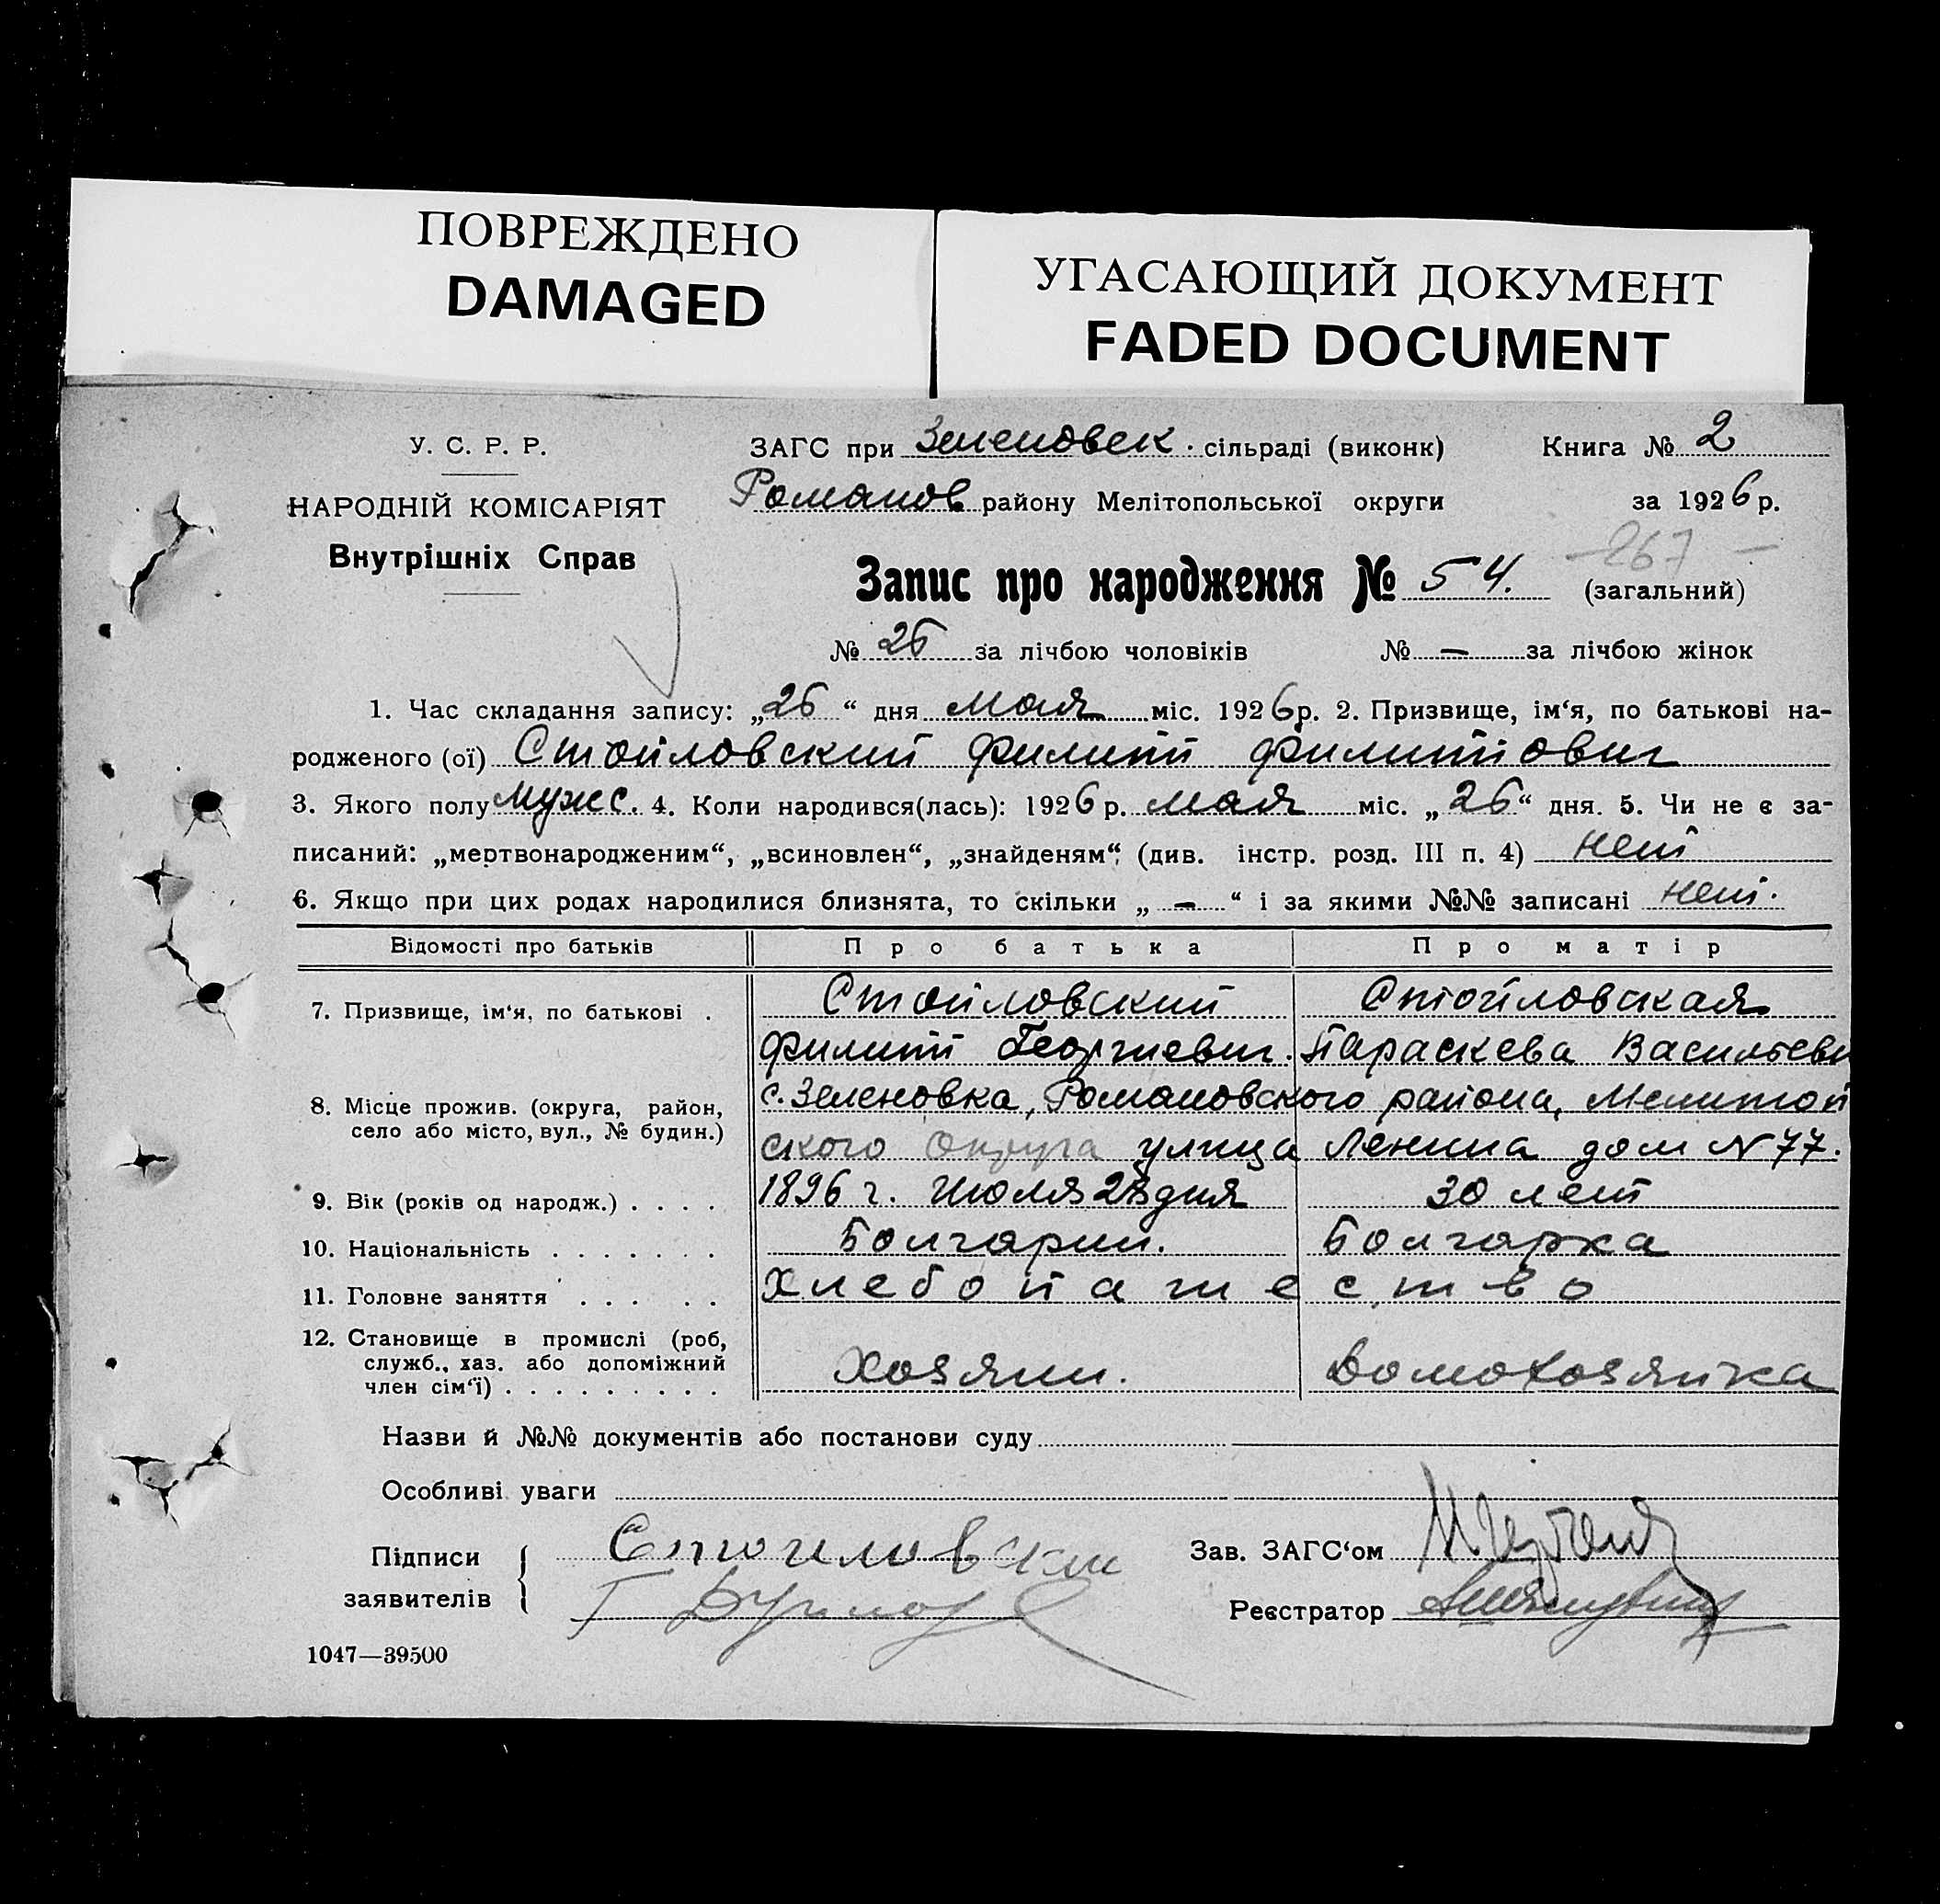 ПОВРЕЖДЕНО
DAMAGED
УГАСАЮЩИЙ ДОКУМЕНТ
FADED DOCUMENT
У. С. Р. Р.
НАРОДНІЙ КОМІСАРІЯТ
Внутрішніх Справ
ЗАГС при Зеленовск. сільраді (виконк) Книга № 2
Романов. району Мелітопольської округи за 1926 р.
267 —
Запис про народження № 54. (загальний)
№ 26 за лічбою чоловіків № — за лічбою жінок
1. Час складання запису: „26“ дня мая міс. 1926 р. 2. Призвище, ім‘я, по батькові на-
родженого (ої) Стойловский Филипп Филиппович
3. Якого полу мужс. 4. Коли народився(лась): 1926 р. мая міс. „26“ дня. 5. Чи не є за-
писаний: „мертвонародженим“, „всиновлен“, „знайденям“ (див. інстр. розд. III п. 4) нет
6. Якщо при цих родах народилися близнята, то скільки „ — “ і за якими №№ записані нет.
Відомості про батьків Про батька Про матір
7. Призвище, ім‘я, по батькові . Стойловский Стойловская
Филипп Георгиевич. Параскева Васильевн
8. Місце прожив. (округа, район, с. Зеленовка, Романовского района, Мелитоп
село або місто, вул., № будин.) ского округа улица Ленина дом N 77.
9. Вік (років од народж.) . . . . 1896 г. Июля дня 30 лет
10. Національність . . . . . . . Болгарин. Болгарка
11. Головне заняття . . . . . Хлебопашество
12. Становище в промислі (роб,
служб., хаз. або допоміжний Хозяин. Домохозяйка
член сім‘ї) . . . . . . . . .
Назви й №№ документів або постанови суду
Особливі уваги
Підписи Стоиловски Зав. ЗАГС‘ом
заявителів Реєстратор
1047—39500